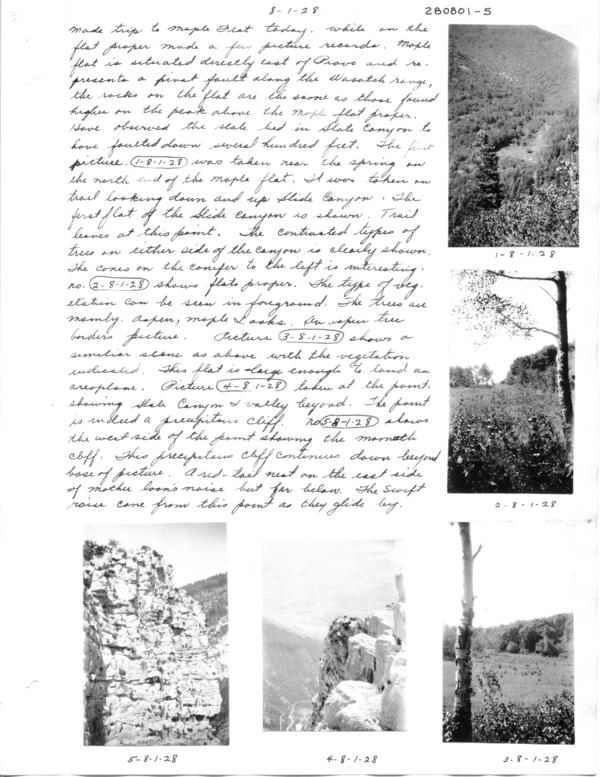 8-1-28
280801-5
made trip to Maple Flat today. while on the
flat proper made a few picture records. Maple
flat is situated directly east of Provo and re-
presents a pivat fault along the Wasatch range,
the rocks on the flat are the same as those found
higher on the peak above the maple flat proper.
Have observed the slate bed in Slate Canyon to
have faulted down several hundred feet. The first
picture (1-8-1-28) was taken near the spring on
the north end of the maple flat. It was taken on
trail looking down and up Slide Canyon. The
first flat of the Slide Canyon is shown. Trail
leaves at this point. The contrasted types of
trees on either side of the canyon is clearly shown.
The cones on the conifer to the left is interesting.
no. (2-8-1-28) shows flats proper. The type of veg-
etation can be seen in foreground. The trees are
mainly. Aspen, maple & oaks. An aspen tree
borders picture. Picture (3-8-1-28) shows a
similiar scene as above with the vegetation
indicated. This flat is large enough to land an
areoplane. Picture (4-8-1-28) taken at the point.
showing Slate Canyon & valley beyond. The point
is indeed a precipitous cliff. no (5-8-1-28) shows
the west side of the point showing the
cliff. This precipitous cliff continues down beyond
base of picture. A red-tail nest on the east side
of noise but far below. The Swift
noise come from this point as they glide by.
1-8-1-28
2-8-1-28
5-8-1-28
4-8-1-28
3-8-1-28